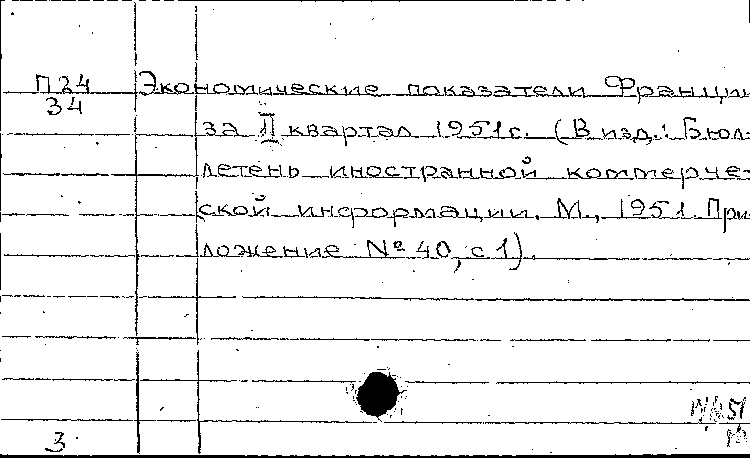 П24 Экономические показатели Франции
34
за II квартал 1951г. (В изд.: Бюл-
летень иностранной коммерче-
ской информации. М., 1951. При-
ложение №40, с 1).
3